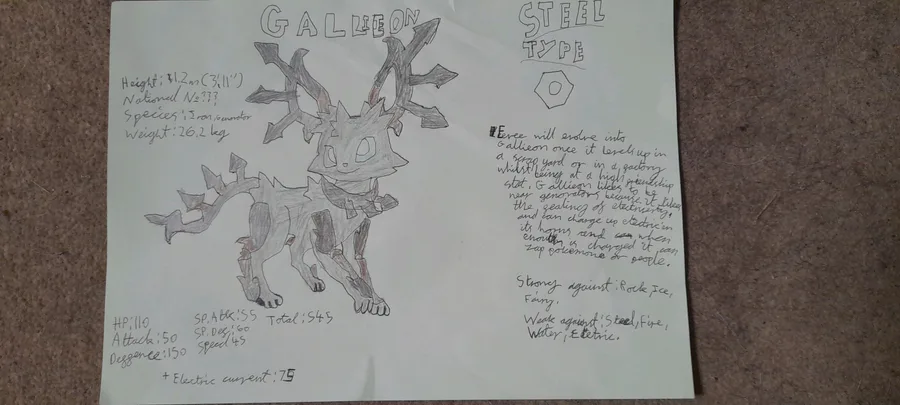 GALLIEON
STEEL
TYPE
Height: 1.2m (3'11")
National No???
Species: Iron
Weight: 26.2 kg
Eevee will evolve into
Gallieon once it levels up in
a scrap yard or in a factory
whilst being at a high friendship
stat. Gallieon likes to be
near generators because it likes
the fealing of electricity,
and can charge up electric in
its horns and when
enough is charged it can
zap pokemone or people.
Strong against: Rock, Ice,
Fairy.
Weak against: Steel, Fire,
Water, Electric.
HP: 110
Attack: 50
Deffence: 150
SP. Attk: 55
SP. Def: 60
Speed 45
Total: 545
+ Electric current: 75